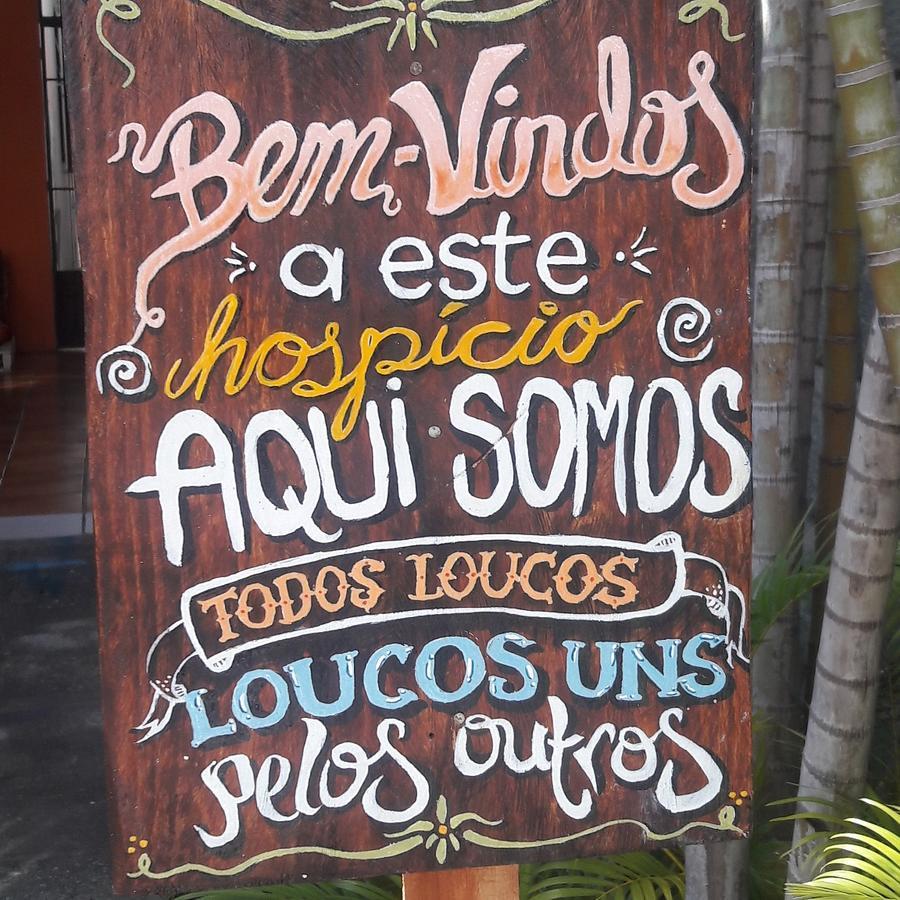 Bem-Vindos
a este
hospício
AQUi SOMOS
TODOS LOUCOS
LOUCOS UNS
pelos outros